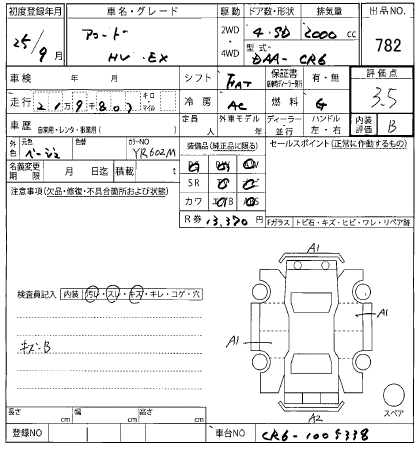 初度登録年月 車名・グレード 駆動 ドア数・形状 排気量 出品NO.
25/9月 アコード HV EX 2WD・4WD 4・SD 2000cc 782
型式 DAA-CR6
車検 年 月 シフト FAT 保証書 有・無 評価点
走行 キロ・マイル 冷房 AC 燃料 G 3.5
車歴 自家用・レンタ・事業用( ) 定員 人 外車モデル 年 ディーラー・並行 ハンドル 左・右 内装評価 B
外色 元色 ベージュ 色替 カラーNO YR602M 装備品(純正品に限る) セールスポイント(正常に作動するもの)
名義変更期限 月 日迄 積載 t SR
注意事項(欠品・修復・不具合箇所および状態) カワ
R券 13,370 円 Fガラス トビ石・キズ・ヒビ・ワレ・リペア跡
A1
検査員記入 内装 汚レ・スレ・キズ・キレ・コゲ・穴
A1
A1
キズB
スペア
A2
長さ cm 幅 cm 高さ cm
登録NO 車台NO CR6-1005338